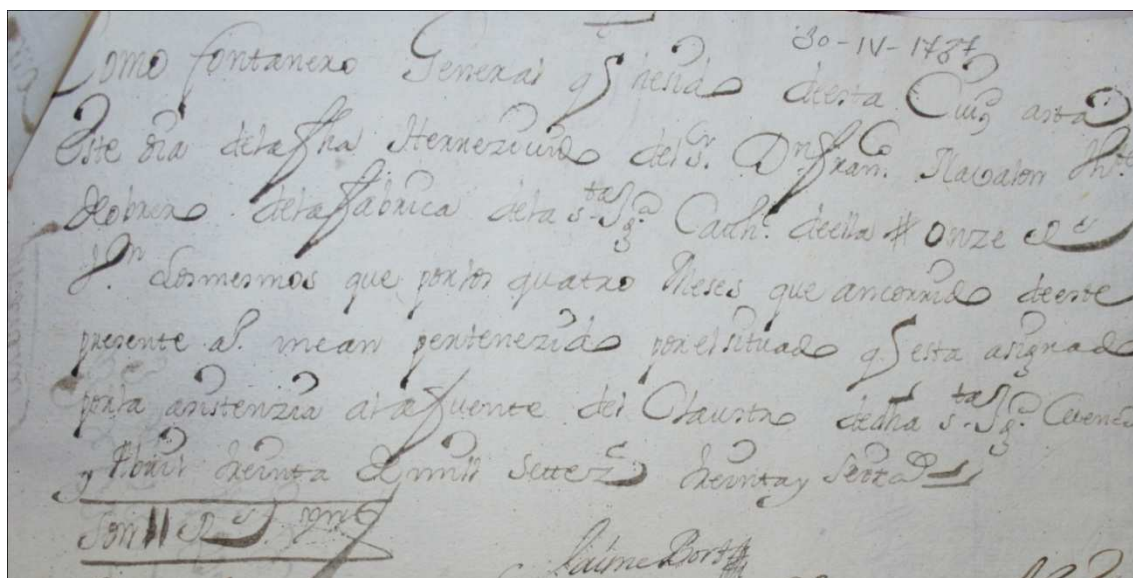 30-IV-1737
Como fontanero General q he sido deesta Ciud asta
Este dia delafha He rrezivido del Sr. Dn. Fran.co Navalon Pbt.e
obrero delafabrica dela S.ta Ig.a Cath.l deella # onze Rs
Vn Losmesmos que porlos quatro Meses que ancorrido deeste
presente a.o mean pertenezido porelsituado q esta asignado
porla asistenzia alafuente del Claustro dedha S.ta Ig.a Cuenca
y Abril treinta de mill Settez.s treintay Siette
Son 11 Rs Vn
Jaime Bort